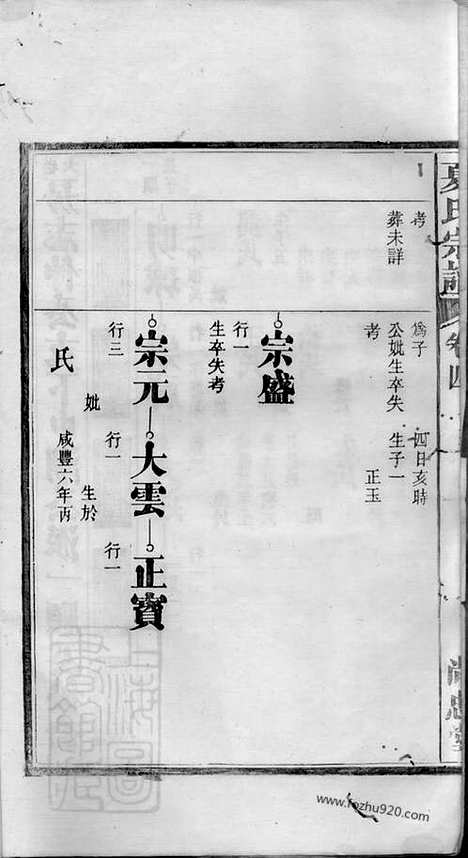 夏氏宗譜 卷四
考
葬未詳
為子
公妣生卒失
考
四日亥時
生子一
正玉
宗盛
行一
生卒失考
宗元 大雲 正寶
行三 行一 行一
妣 生於
氏 咸豐六年丙
上海圖書館藏
www.fozhu920.com